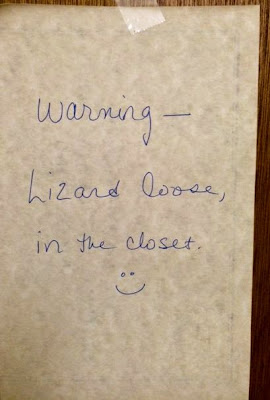 Warning —
Lizard loose,
in the closet.